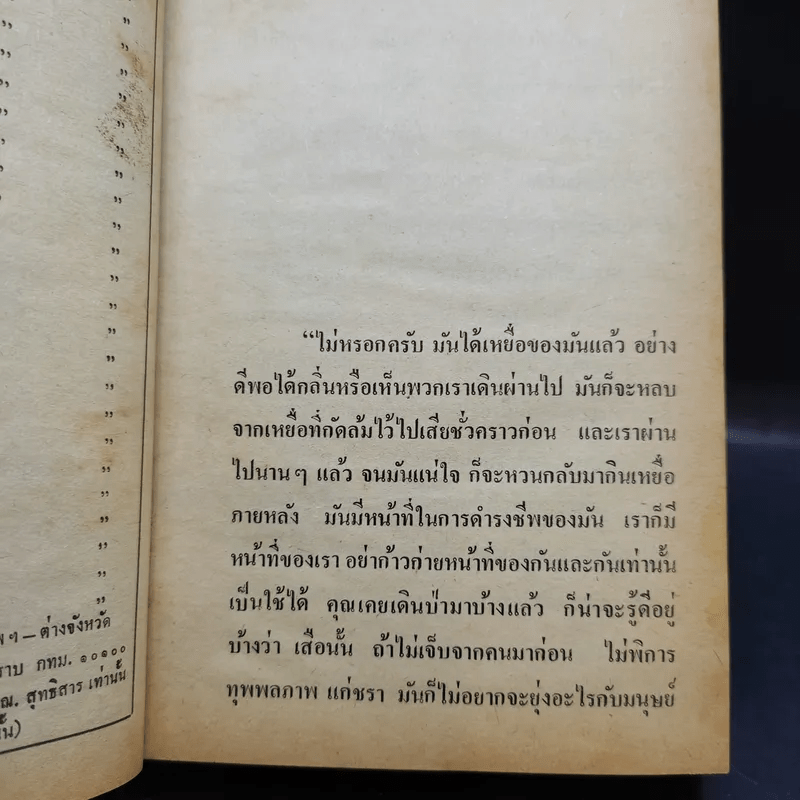 ”
”
”
”
”
”
”
”
”
”
”
”
”
”
”
”
”
”
”
”
”
”
”
พฯ – ต่างจังหวัด
ราบ กทม. ๑๐๑๐๐
ณ. สุทธิสาร เท่านั้น
“ไม่หรอกครับ มันได้เหยื่อของมันแล้ว อย่าง
ดีพอได้กลิ่นหรือเห็นพวกเราเดินผ่านไป มันก็จะหลบ
จากเหยื่อที่กัดล้มไว้ไปเสียชั่วคราวก่อน และเราผ่าน
ไปนานๆ แล้ว จนมันแน่ใจ ก็จะหวนกลับมากินเหยื่อ
ภายหลัง มันมีหน้าที่ในการดำรงชีพของมัน เราก็มี
หน้าที่ของเรา อย่าก้าวก่ายหน้าที่ของกันและกันเท่านั้น
เป็นใช้ได้ คุณเคยเดินป่ามาบ้างแล้ว ก็น่าจะรู้ดีอยู่
บ้างว่า เสือนั้น ถ้าไม่เจ็บจากคนมาก่อน ไม่พิการ
ทุพพลภาพ แก่ชรา มันก็ไม่อยากจะยุ่งอะไรกับมนุษย์